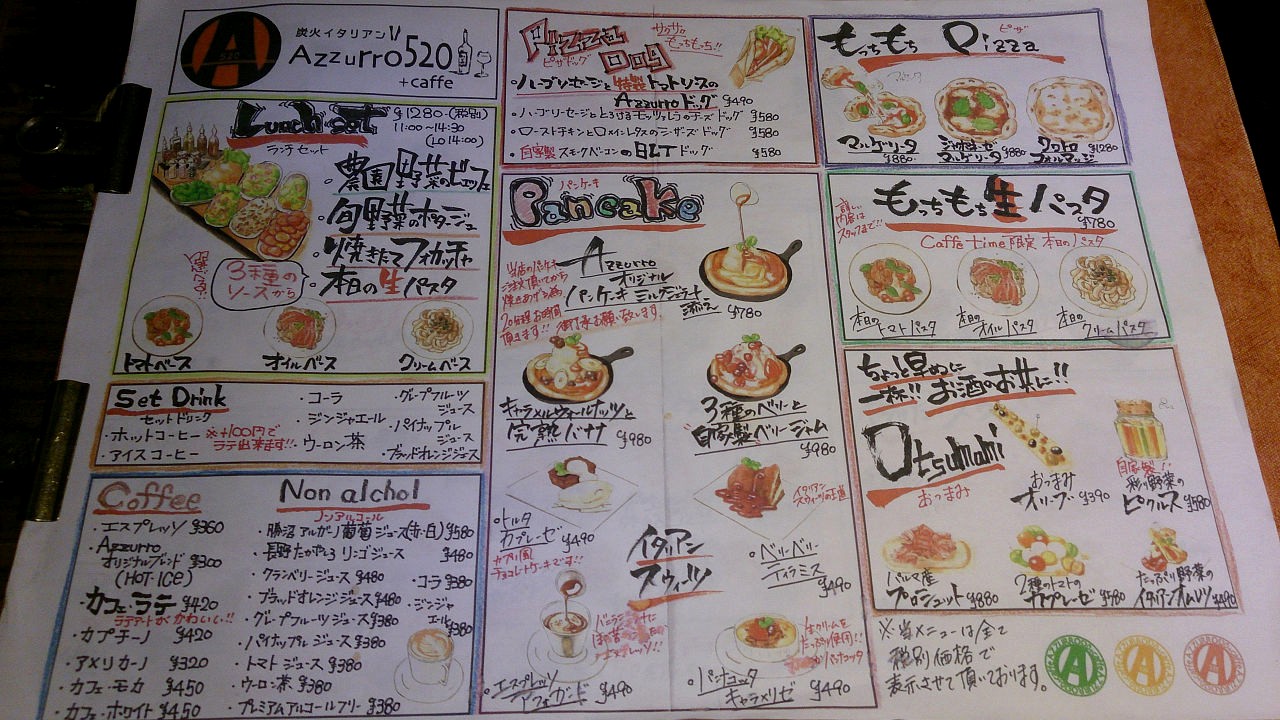 炭火イタリアン
Azzurro520
+caffe
A
520
Lunch set
¥1280-(税別)
11:00〜14:30
(LO 14:00)
ランチセット
・農園野菜のビュッフェ
・旬野菜のポタージュ
・焼きたてフォカッチャ
・本日の生パスタ
選べる!!
3種の
ソースから
トマトベース
オイルベース
クリームベース
Set Drink
セットドリンク
・ホットコーヒー
・アイスコーヒー
※+100円で
ラテ出来ます!!
・コーラ
・ジンジャエール
・ウーロン茶
・グレープフルーツ
ジュース
・パイナップル
ジュース
・ブラッドオレンジジュース
Coffee
・エスプレッソ ¥360
・Azzurro
オリジナルブレンド ¥300
(HOT・ICE)
・カフェ・ラテ ¥420
ラテアートがかわいい!!
・カプチーノ ¥420
・アメリカーノ ¥320
・カフェ・モカ ¥450
・カフェ・ホワイト ¥450
Non alchol
ノンアルコール
・勝沼 アルガーノ葡萄ジュース(赤・白) ¥580
・長野 たかやしろ リンゴジュース ¥480
・クランベリージュース ¥480
・ブラッドオレンジジュース ¥480
・グレープフルーツジュース ¥380
・パイナップルジュース ¥380
・トマトジュース ¥380
・ウーロン茶 ¥380
・プレミアムアルコールフリー ¥380
・コーラ ¥380
・ジンジャ
エール
¥380
Pizza
Dog
ピザドッグ
サクサク
もっちもち!!
・ハーブソーセージと特製トマトソースの
Azzurroドッグ ¥490
・ハーブソーセージととろけるモッツァレラのチーズドッグ ¥580
・ローストチキンとロメインレタスのシーザーズドッグ ¥580
・自家製スモークベーコンのBLTドッグ ¥580
パンケーキ
Pancake
当店のパンケーキは
ご注文頂いてから
焼きあげる為
20分程お時間
頂きます!!
御了承お願い致します。
Azzurro
オリジナル
パンケーキ ミルクジェラート
添え
¥780
キャラメルウォールナッツと
完熟バナナ ¥980
3種のベリーと
自家製ベリージャム
¥980
・トルタ
カプレーゼ ¥490
カプリ風
チョコレートケーキです!!
イタリアン
スウィーツ
イタリアン
スウィーツの王道
・ベリーベリー
ティラミス
¥490
・エスプレッソ
アフォガード ¥490
・パンナコッタ
キャラメリゼ ¥490
もっちもち Pizza
ピザ
マルゲリータ
¥880
¥880
クワトロ
フォルマッジ
¥1280
もっちもち生パスタ
¥780
詳しい
内容は
スタッフまで!!
Caffe time限定 本日のパスタ
本日の
トマトパスタ
本日の
オイルパスタ
本日の
クリームパスタ
ちょっと早めに
一杯!! お酒のお共に!!
Otsumami
おつまみ
おつまみ
オリーブ ¥390
自家製!!
彩り野菜の
ピクルス ¥580
パルマ産
プロシュット ¥880
2種のトマトの
カプレーゼ ¥580
たっぷり野菜の
イタリアンオムレツ ¥490
※当メニューは全て
税別価格で
表示させて頂いております。
A
A
A